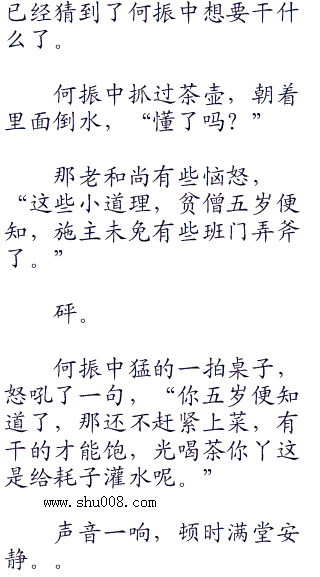 已经猜到了何振中想要干什
么了。
何振中抓过茶壶，朝着
里面倒水，“懂了吗？”
那老和尚有些恼怒，
“这些小道理，贫僧五岁便
知，施主未免有些班门弄斧
了。”
砰。
何振中猛的一拍桌子，
怒吼了一句，“你五岁便知
道了，那还不赶紧上菜，有
干的才能饱，光喝茶你丫这
是给耗子灌水呢。”
www.shu008.com
声音一响，顿时满堂安
静。。